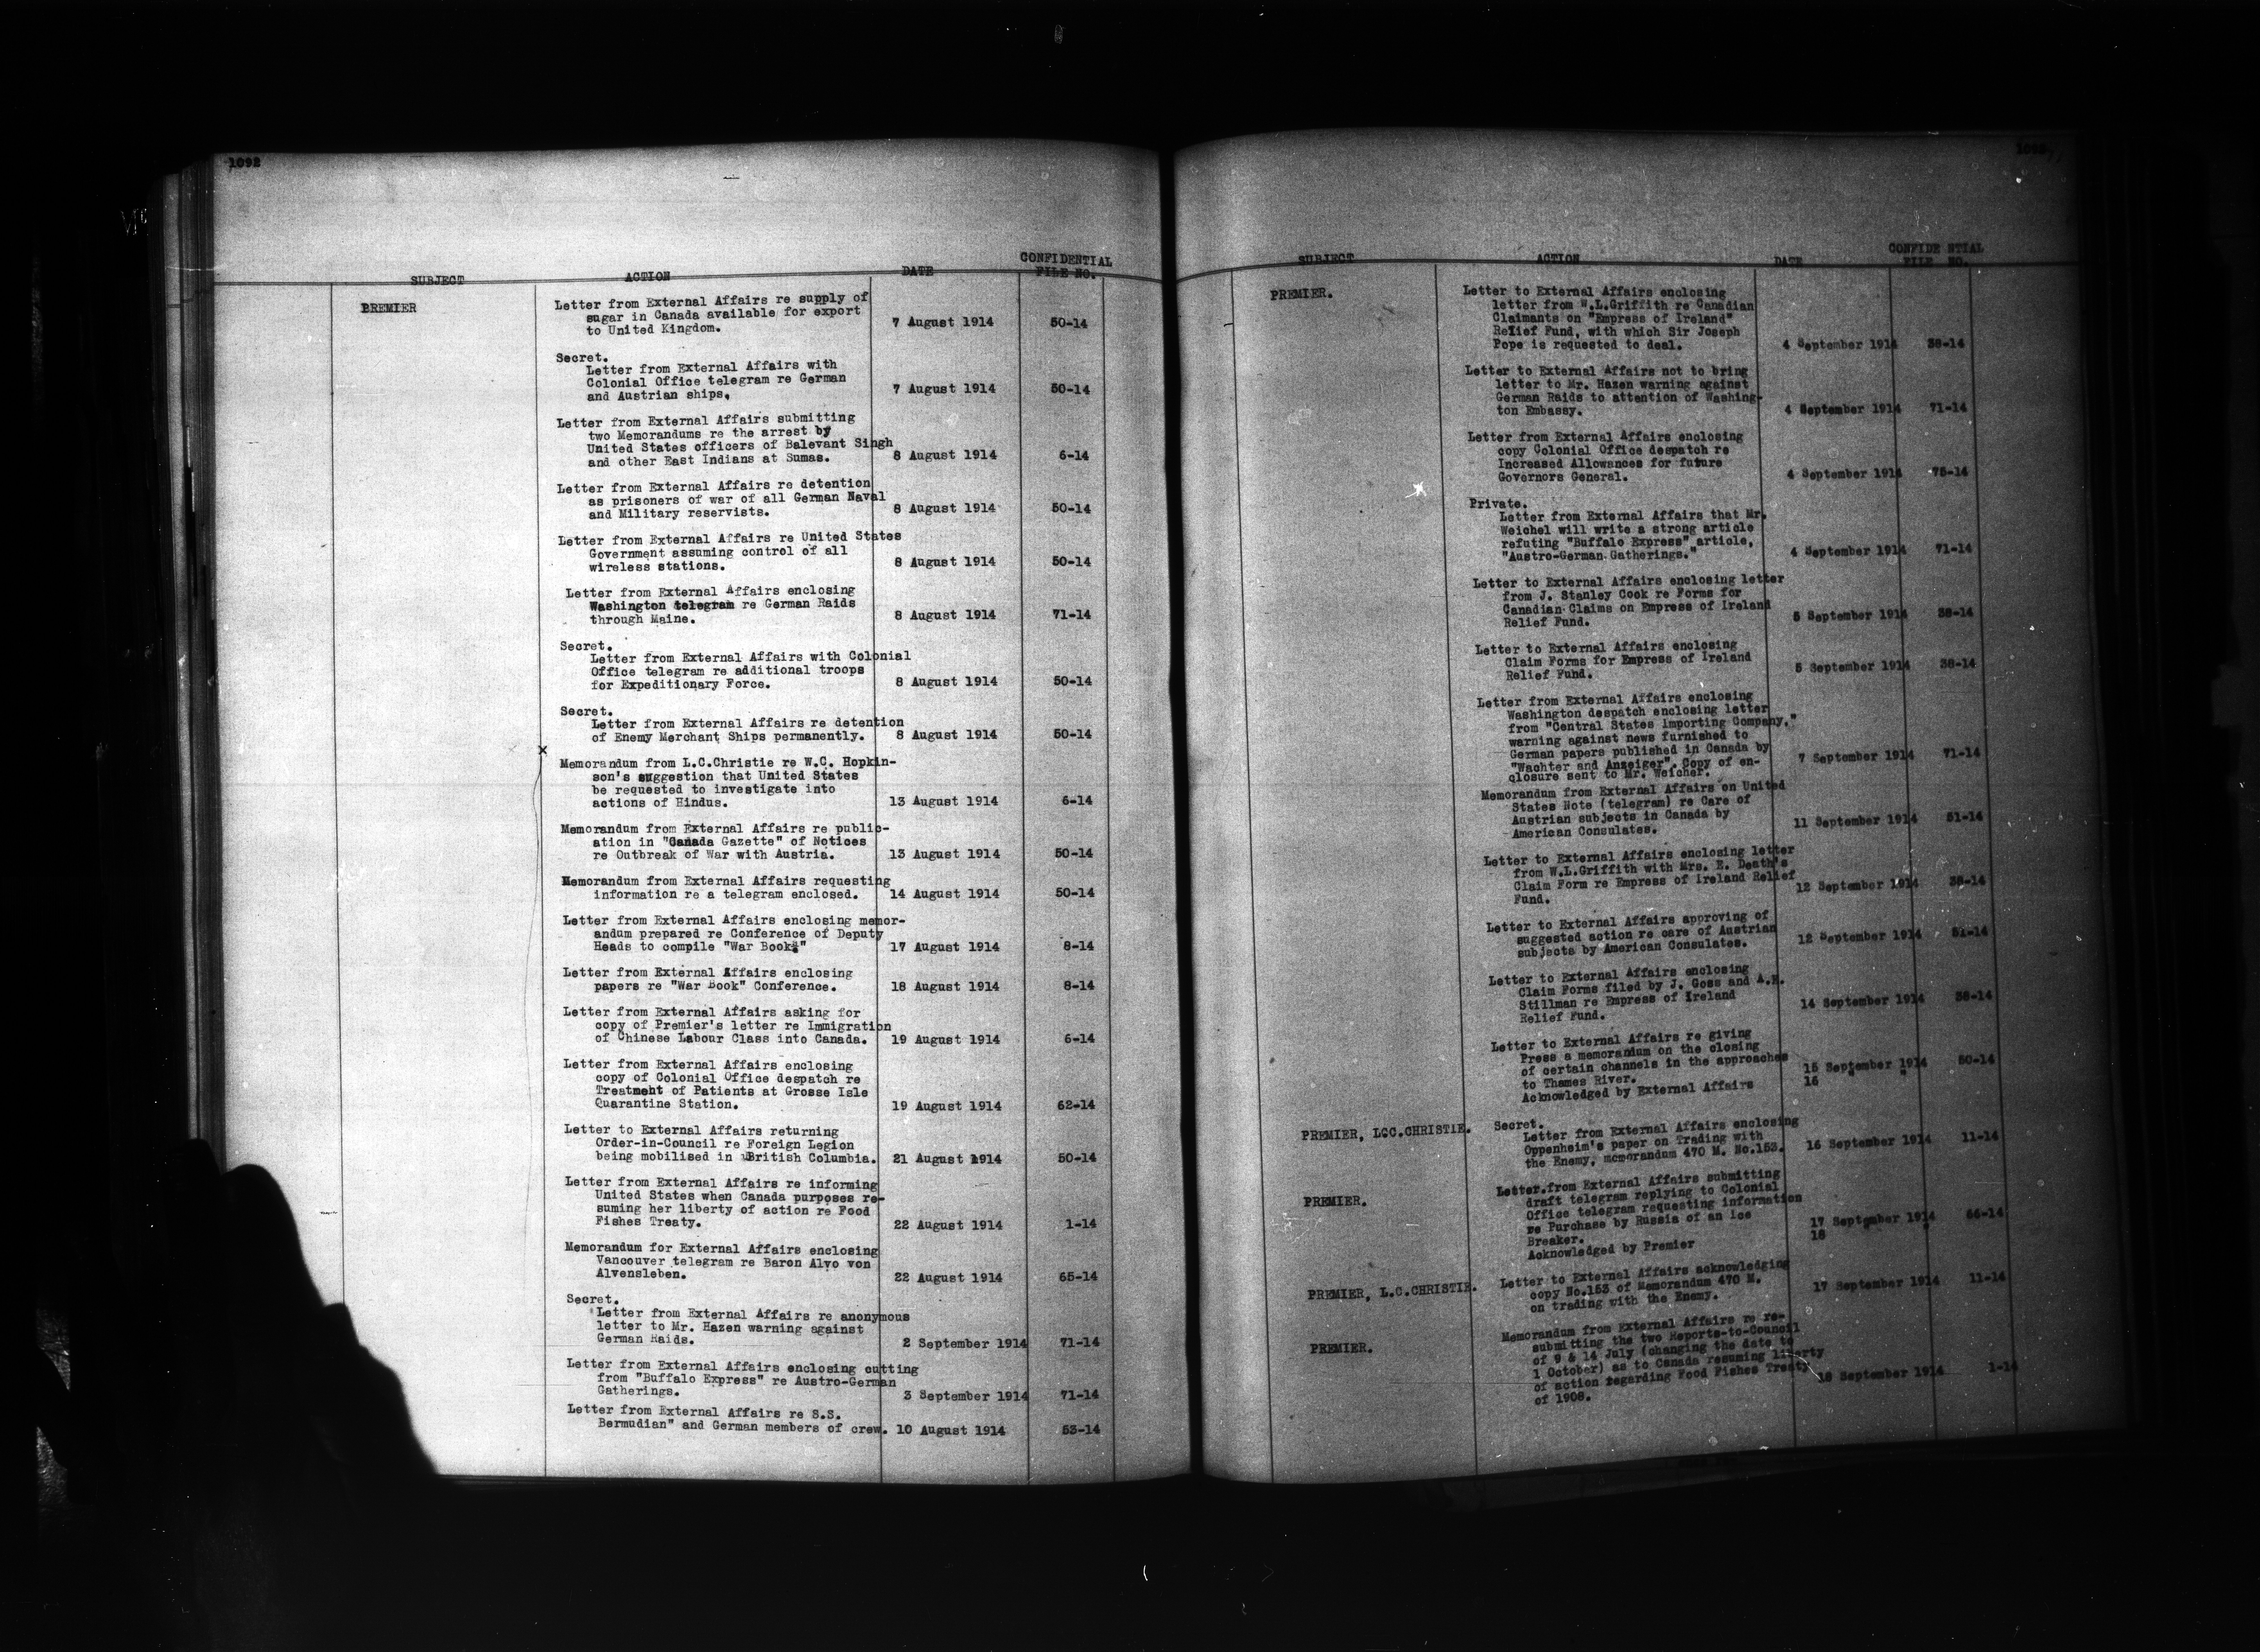 1092
SUBJECT ACTION DATE CONFIDENTIAL
FILE NO.
PREMIER Letter from External Affairs re supply of
sugar in Canada available for export
to United Kingdom. 7 August 1914 50-14
Secret.
Letter from External Affairs with
Colonial Office telegram re German
and Austrian ships. 7 August 1914 50-14
Letter from External Affairs submitting
two Memorandums re the arrest by
United States officers of Balevant Singh
and other East Indians at Sumas. 8 August 1914 6-14
Letter from External Affairs re detention
as prisoners of war of all German Naval
and Military reservists. 8 August 1914 50-14
Letter from External Affairs re United States
Government assuming control of all
wireless stations. 8 August 1914 50-14
Letter from External Affairs enclosing
Washington telegram re German Raids
through Maine. 8 August 1914 71-14
Secret.
Letter from External Affairs with Colonial
Office telegram re additional troops
for Expeditionary Force. 8 August 1914 50-14
Secret.
Letter from External Affairs re detention
of Enemy Merchant Ships permanently. 8 August 1914 50-14
x
Memorandum from L.C.Christie re W.C. Hopkin-
son's suggestion that United States
be requested to investigate into
actions of Hindus. 13 August 1914 6-14
Memorandum from External Affairs re public-
ation in "Canada Gazette" of Notices
re Outbreak of War with Austria. 13 August 1914 50-14
Memorandum from External Affairs requesting
information re a telegram enclosed. 14 August 1914 50-14
Letter from External Affairs enclosing memor-
andum prepared re Conference of Deputy
Heads to compile "War Book." 17 August 1914 8-14
Letter from External Affairs enclosing
papers re "War Book" Conference. 18 August 1914 8-14
Letter from External Affairs asking for
copy of Premier's letter re Immigration
of Chinese Labour Class into Canada. 19 August 1914 6-14
Letter from External Affairs enclosing
copy of Colonial Office despatch re
Treatment of Patients at Grosse Isle
Quarantine Station. 19 August 1914 62-14
Letter to External Affairs returning
Order-in-Council re Foreign Legion
being mobilised in British Columbia. 21 August 1914 50-14
Letter from External Affairs re informing
United States when Canada purposes re-
suming her liberty of action re Food
Fishes Treaty. 22 August 1914 1-14
Memorandum for External Affairs enclosing
Vancouver telegram re Baron Alvo von
Alvensleben. 22 August 1914 65-14
Secret.
Letter from External Affairs re anonymous
letter to Mr. Hazen warning against
German Raids. 2 September 1914 71-14
Letter from External Affairs enclosing cutting
from "Buffalo Express" re Austro-German
Gatherings. 3 September 1914 71-14
Letter from External Affairs re S.S.
Bermudian" and German members of crew. 10 August 1914 53-14
SUBJECT ACTION DATE CONFIDENTIAL
FILE NO.
PREMIER. Letter to External Affairs enclosing
letter from W.L.Griffith re Canadian
Claimants on "Empress of Ireland"
Relief Fund, with which Sir Joseph
Pope is requested to deal. 4 September 1914 38-14
Letter to External Affairs not to bring
letter to Mr. Hazen warning against
German Raids to attention of Washing-
ton Embassy. 4 September 1914 71-14
Letter from External Affairs enclosing
copy Colonial Office despatch re
Increased Allowances for future
Governors General. 4 September 1914 75-14
Private.
Letter from External Affairs that Mr.
Weichel will write a strong article
refuting "Buffalo Express" article,
"Austro-German Gatherings." 4 September 1914 71-14
Letter to External Affairs enclosing letter
from J. Stanley Cook re Forms for
Canadian Claims on Empress of Ireland
Relief Fund. 5 September 1914 38-14
Letter to External Affairs enclosing
Claim Forms for Empress of Ireland
Relief Fund. 5 September 1914 38-14
Letter from External Affairs enclosing
Washington despatch enclosing letter
from "Central States Importing Company,"
warning against news furnished to
German papers published in Canada by
"Wachter and Anzeiger". Copy of en-
closure sent to Mr. Weichel. 7 September 1914 71-14
Memorandum from External Affairs on United
States Note (telegram) re Care of
Austrian subjects in Canada by
American Consulates. 11 September 1914 51-14
Letter to External Affairs enclosing letter
from W.L.Griffith with Mrs. E. Death's
Claim Form re Empress of Ireland Relief
Fund. 12 September 1914 38-14
Letter to External Affairs approving of
suggested action re care of Austrian
subjects by American Consulates. 12 September 1914 51-14
Letter to External Affairs enclosing
Claim Forms filed by J. Goss and A.H.
Stillman re Empress of Ireland
Relief Fund. 14 September 1914 38-14
Letter to External Affairs re giving
Press a memorandum on the closing
of certain channels in the approaches
to Thames River. 15 September 1914 50-14
Acknowledged by External Affairs 16 " "
PREMIER, L.C.CHRISTIE. Secret.
Letter from External Affairs enclosing
Oppenheim's paper on Trading with
the Enemy, memorandum 470 M. No.153. 16 September 1914 11-14
PREMIER. Letter from External Affairs submitting
draft telegram replying to Colonial
Office telegram requesting information
re Purchase by Russia of an Ice
Breaker. 17 September 1914 66-14
Acknowledged by Premier 18 " "
PREMIER, L.C.CHRISTIE. Letter to External Affairs acknowledging
copy No.153 of Memorandum 470 M.
on trading with the Enemy. 17 September 1914 11-14
PREMIER. Memorandum from External Affairs re re-
submitting the two Reports-to-Council
of 9 & 14 July (changing the date to
1 October) as to Canada resuming liberty
of action regarding Food Fishes Treaty
of 1908. 18 September 1914 1-14